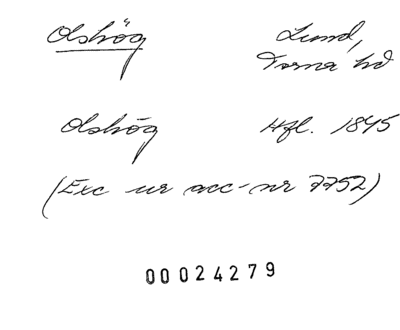 Olshög Lund,
Torna hd
Olshög Hfl. 1845
(Exc ur acc-nr 7752)
00024279